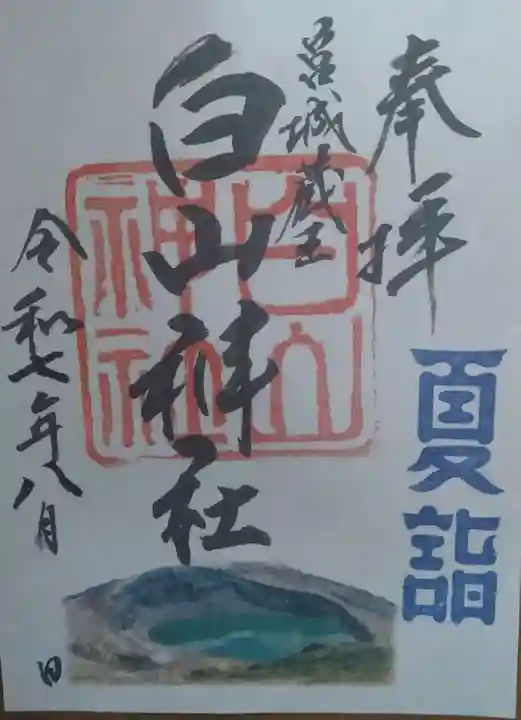 奉拝
夏詣
宮城蔵王
白山神社
白山
神社
令和七年八月
日